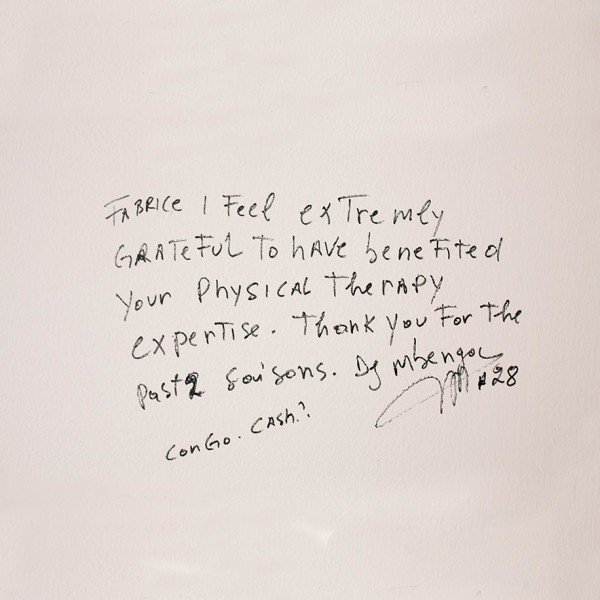 FABRICE I Feel exTremly
GRATeFUL To hAVe beneFited
Your PhySICAL TheRAPY
expeRTISe. Thank you FoR The
past 2 saisons. DJ Mbenga
#28
ConGo. CASh.?